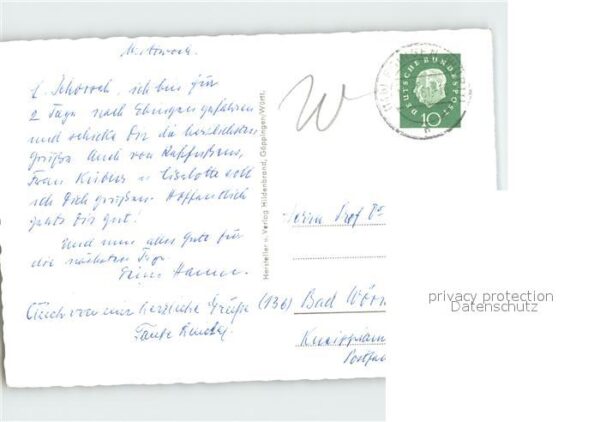 Mittwoch.
L. Schorsch, ich bin für
2 Tage nach Ebingen gefahren
und schicke Dir die herzlichsten
Grüße. Auch von
Frau u. Liselotte soll
ich Dich grüßen. Hoffentlich
geht's Dir gut!
Und nun alles Gute für
die nächsten Tage
Deine Hanne.
Auch von mir herzliche Grüße
Tante
Hersteller u. Verlag Hildenbrand, Göppingen/Württ.
W
DEUTSCHE BUNDESPOST
10
Herrn Prof Dr
(13b) Bad Wöri
Kneippian
Postfa
privacy protection
Datenschutz